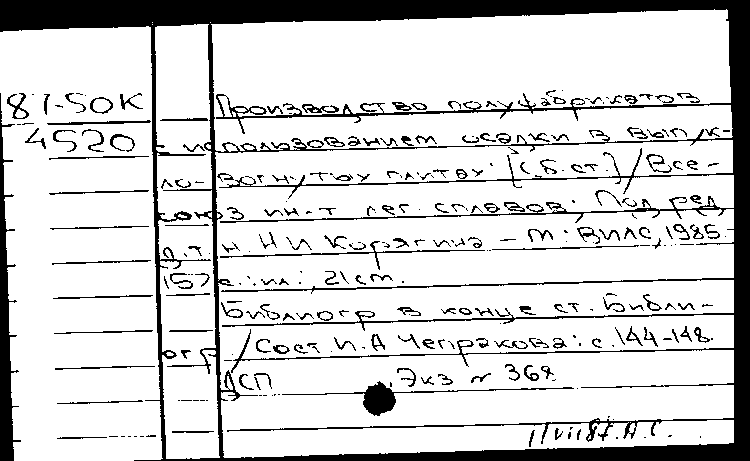 87-50К
4520
Производство полуфабрикатов
с использованием осадки в выпук-
ло-вогнутых плитах: [Сб. ст.] / Все-
союз ин-т лег. сплавов; Под ред
д. т н. Н И Корягина – М: ВИЛС, 1985.-
157 с.: ил.; 21см.
Библиогр в конце ст. Библи-
огр / Сост. И. А Чепракова: с. 144-148.
ДСП Экз № 368
11/VII 87. А. С.